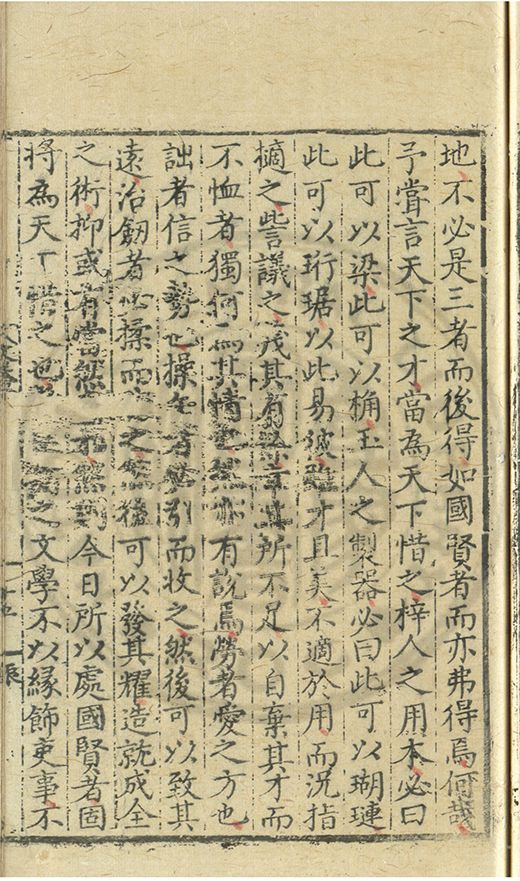 地不必是三者而後得如國賢者而亦弗得焉何哉
予嘗言天下之才當為天下惜之梓人之用木必曰
此可以梁此可以桷玉人之製器必曰此可以瑚璉
此可以珩琚以此易彼雖才且美不適於用而況指
擿之訾議之蔑其有所不足以自棄其才而
不恤者獨何為其情亦有說焉勞者愛之方也
詘者信之勢也操者引而收之然後可以致其
遠治劒者必揉而之後可以發其耀造就成全
之術抑或有當然今日所以處國賢者固
將為天下惜之也之文學不以緣飾吏事不